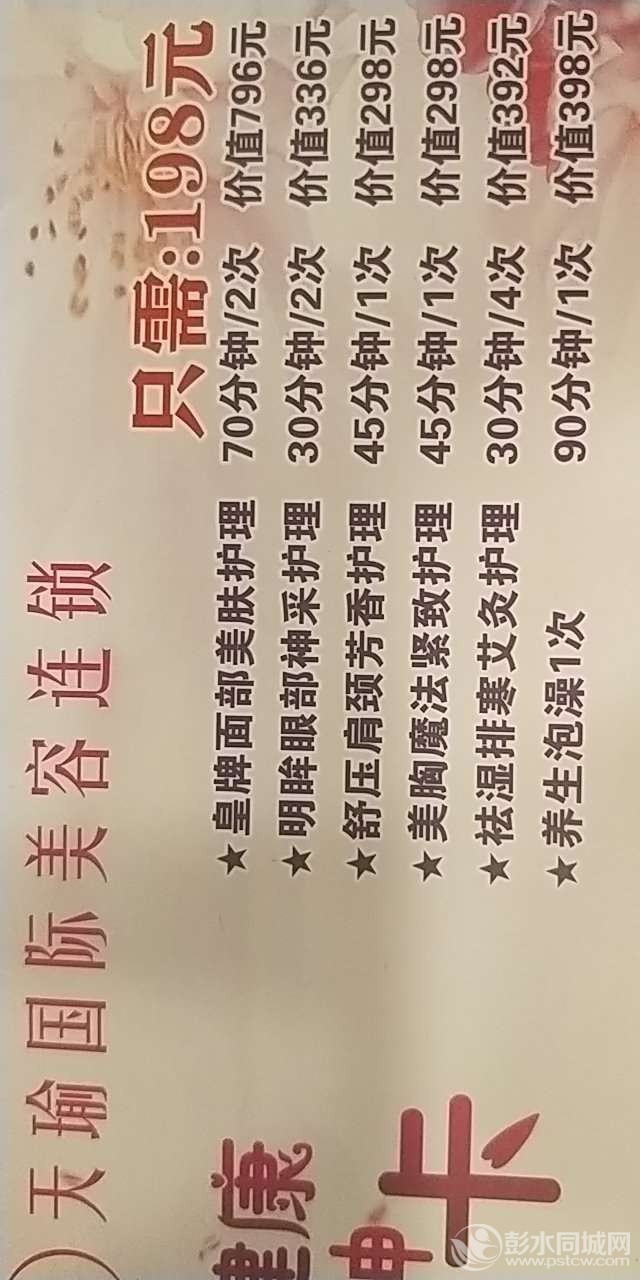 天瑜国际美容连锁
健康
卡
只需:198元
★皇牌面部美肤护理 70分钟/2次 价值796元
★明眸眼部神采护理 30分钟/2次 价值336元
★舒压肩颈芳香护理 45分钟/1次 价值298元
★美胸魔法紧致护理 45分钟/1次 价值298元
★祛湿排寒艾灸护理 30分钟/4次 价值392元
★养生泡澡1次 90分钟/1次 价值398元
彭水同城网
www.pstcw.com